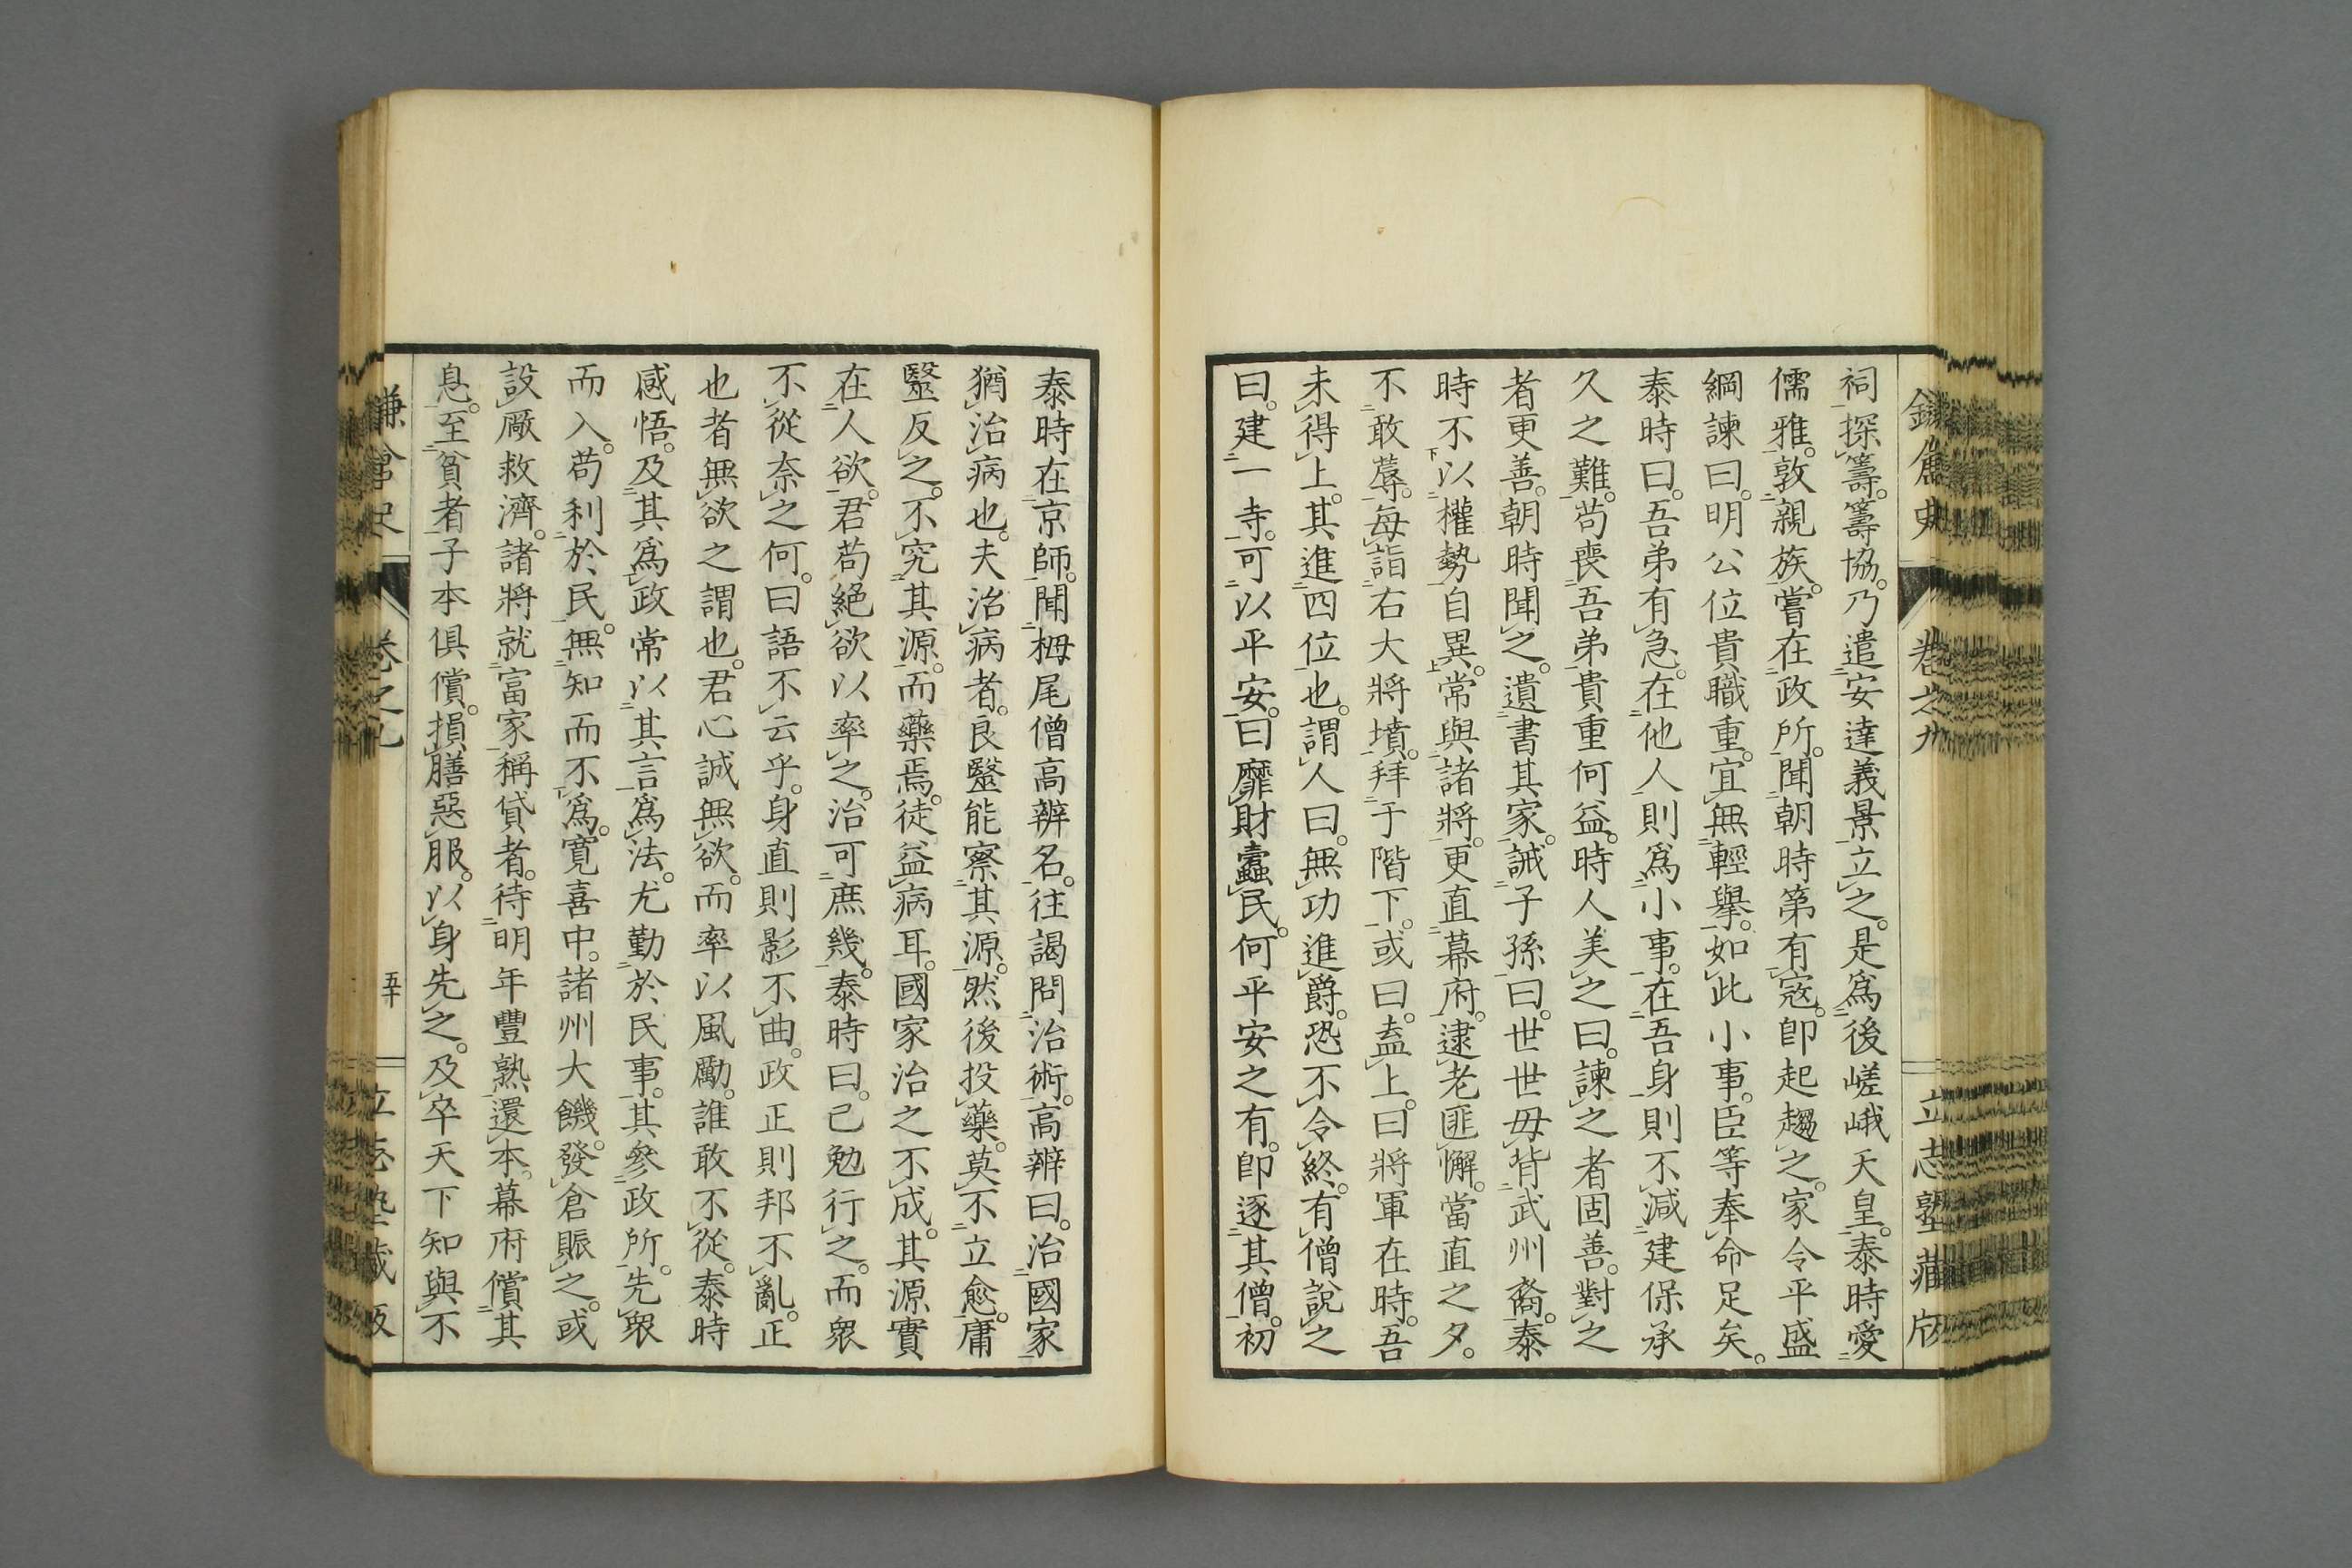 祠探籌。籌協。乃遣安達義景立之。是爲後嵯峨天皇。泰時愛
儒雅。敦親族。嘗在政所。聞朝時第有寇。卽起趨之。家令平盛
綱諫曰。明公位貴職重。宜無輕擧。如此小事。臣等奉命足矣。
泰時曰。吾弟有急。在他人則爲小事。在吾身則不減建保承
久之難。苟喪吾弟。貴重何益。時人美之曰。諫之者固善。對之
者更善。朝時聞之。遺書其家。誡子孫曰。世世毋背武州裔。泰
時不以權勢自異。常與諸將。更直幕府。逮老匪懈。當直之夕。
不敢蓐。每詣右大將墳。拜于階下。或曰。盍上。曰將軍在時。吾
未得上。其進四位也。謂人曰。無功進爵。恐不令終。有僧說之
曰。建一寺。可以平安。曰靡財蠹民。何平安之有。卽逐其僧。初
泰時在京師。聞栂尾僧高辨名。往謁問治術。高辨曰。治國家
猶治病也。夫治病者。良毉能察其源。然後投藥。莫不立愈。庸
毉反之。不究其源。而藥焉。徒益病耳。國家治之不成。其源實
在人欲。君苟絕欲以率之。治可庶幾。泰時曰。已勉行之。而衆
不從奈之何。曰語不云乎。身直則影不曲。政正則邦不亂。正
也者無欲之謂也。君心誠無欲。而率以風勵。誰敢不從。泰時
感悟。及其爲政常以其言爲法。尤勤於民事。其參政所。先衆
而入。苟利於民。無知而不爲。寬喜中。諸州大饑。發倉賑之。或
設廠救濟。諸將就富家稱貸者。待明年豐熟還本。幕府償其
息。至貧者子本俱償。損膳惡服。以身先之。及卒天下知與不
卷之九
五十
立志塾藏版